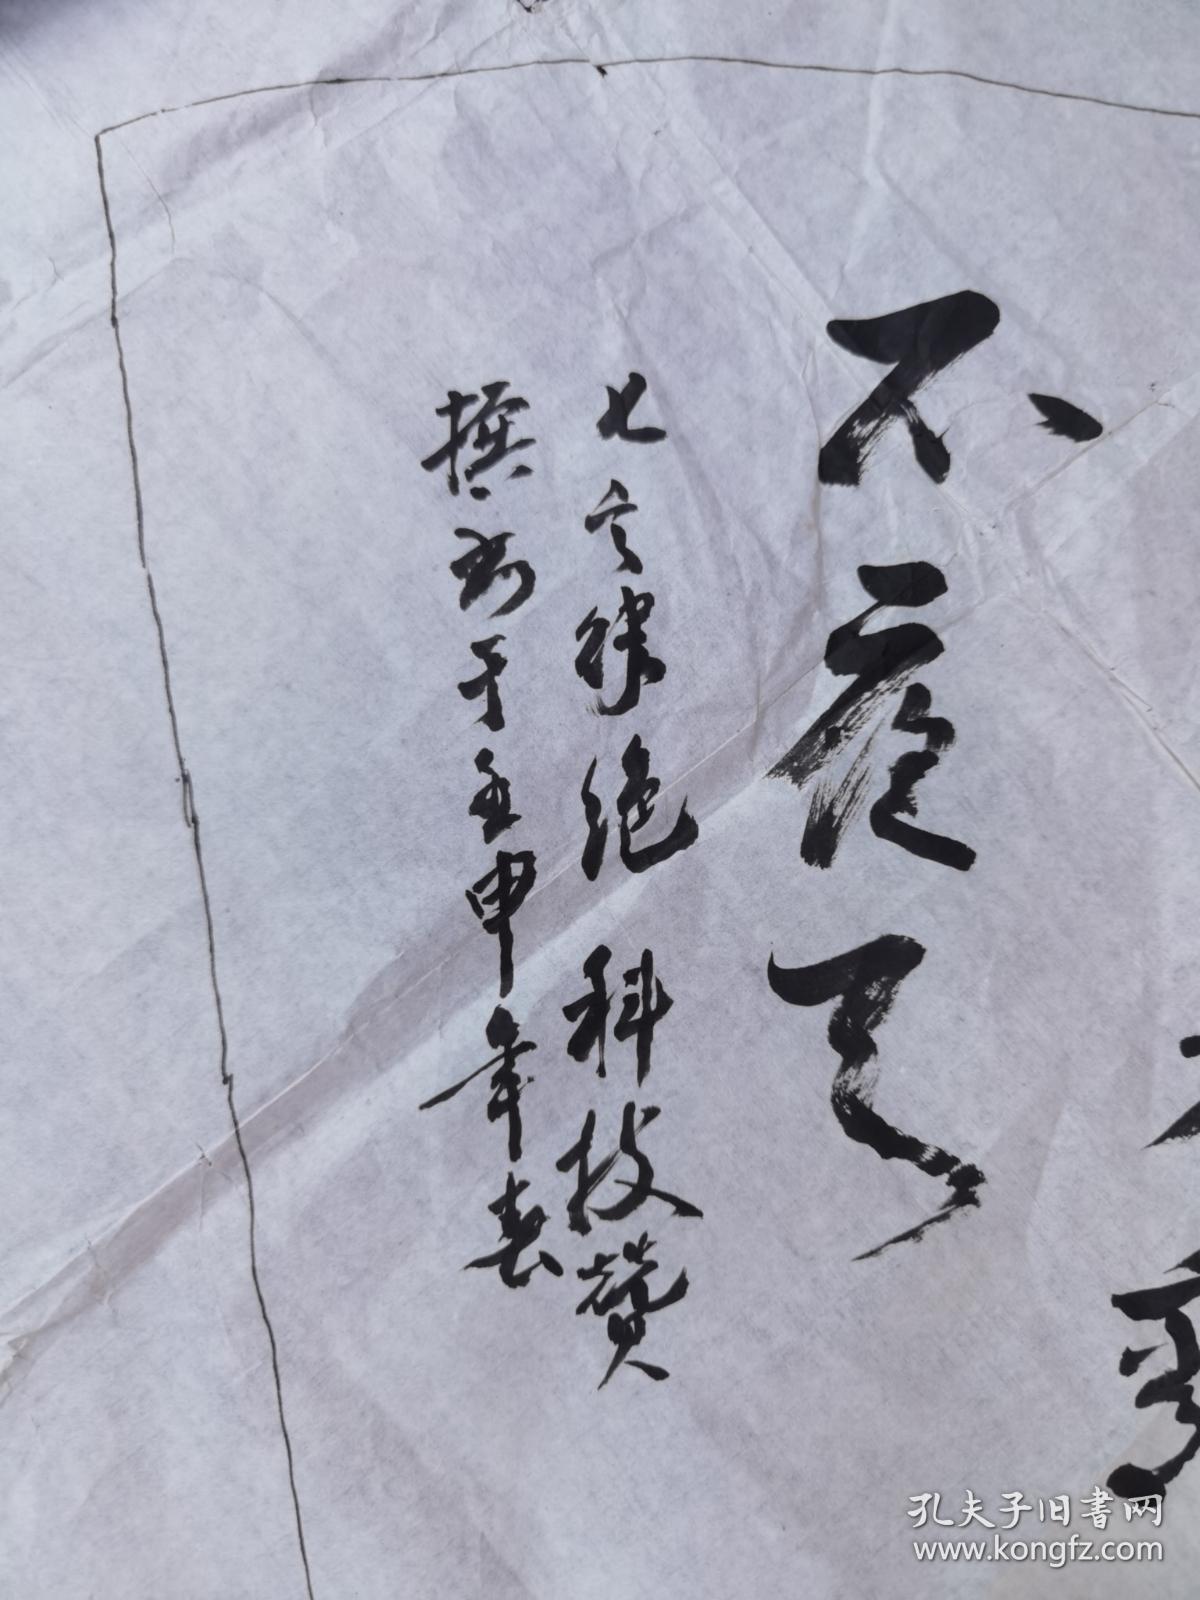 不夜天
七言律绝 科技赞
撰書于壬申年春
孔夫子旧书网
www.kongfz.com